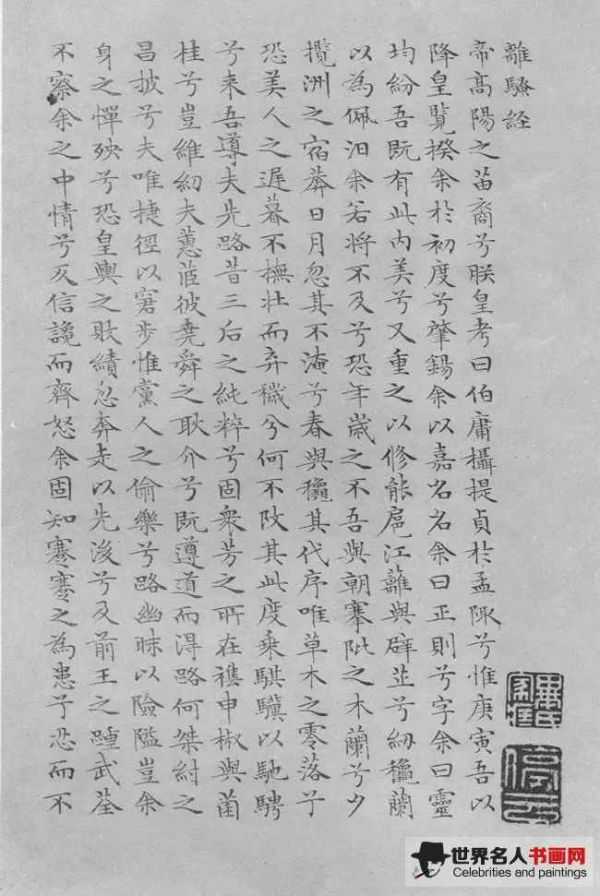 離騷經
帝高陽之苗裔兮朕皇考曰伯庸攝提貞於孟陬兮惟庚寅吾以
降皇覽揆余於初度兮肇錫余以嘉名名余曰正則兮字余曰靈
均紛吾既有此內美兮又重之以修能扈江離與辟芷兮紉龝蘭
以為佩汩余若將不及兮恐年歲之不吾與朝搴阰之木蘭兮夕
攬洲之宿莽日月忽其不淹兮春與龝其代序唯草木之零落兮
恐美人之遲暮不撫壯而弃穢兮何不改其此度乘騏驥以馳騁
兮来吾導夫先路昔三后之純粹兮固衆芳之所在襍申椒與菌
桂兮豈維紉夫蕙茝彼堯舜之耿介兮既遵道而得路何桀紂之
昌披兮夫唯捷徑以窘步惟黨人之偷樂兮路幽昧以險隘豈余
身之憚殃兮恐皇輿之敗績忽奔走以先後兮及前王之踵武荃
不察余之中情兮反信讒而齊怒余固知謇謇之為患兮忍而不
停雲
世界名人书画网
Celebrities and paintings